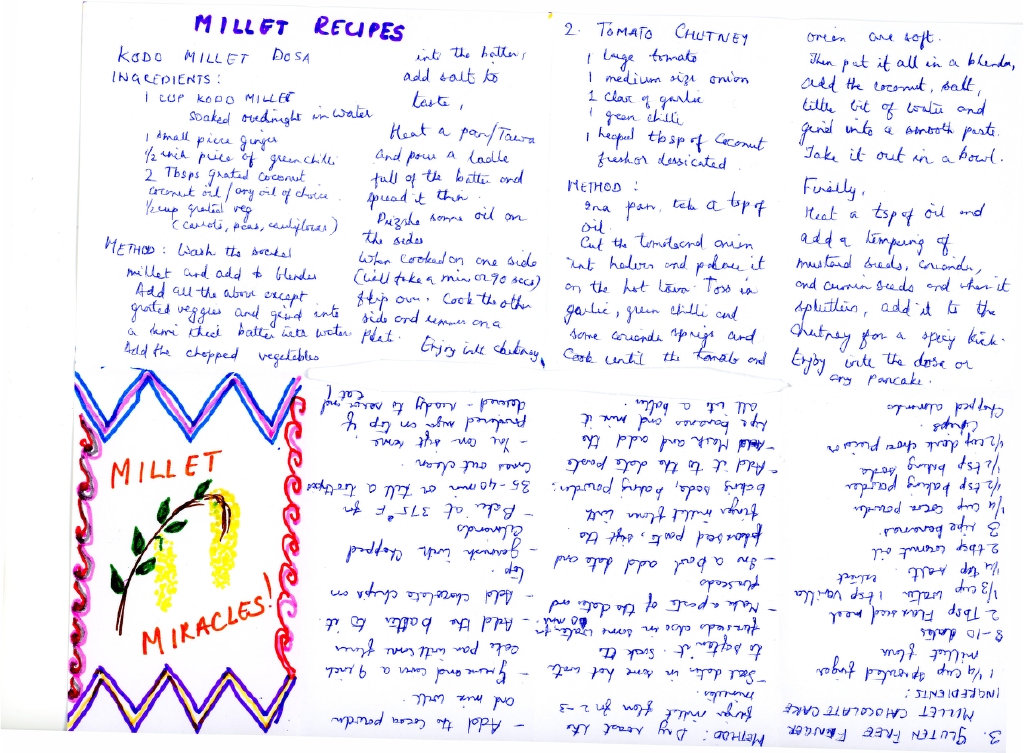 MILLET RECIPES
KODO MILLET DOSA
INGREDIENTS:
1 CUP KODO MILLET
soaked overnight in water
1 small piece ginger
1/2 inch piece of green chilli
2 Tbsps grated coconut
coconut oil / any oil of choice
1/2 cup grated veg
(carrots, peas, cauliflower)
METHOD: Wash the soaked
millet and add to blender
Add all the above except
grated veggies and grind into
a semi thick batter with water
Add the chopped vegetables
into the batter,
add salt to
taste,
Heat a pan/Tawa
and pour a ladle
full of the batter and
spread it thin.
Drizzle some oil on
the sides
When cooked on one side
(will take a min or 90 secs)
flip over. Cook the other
side and remove on a
plate.
Enjoy with chutney
2. TOMATO CHUTNEY
1 large tomato
1 medium size onion
1 clove of garlic
1 green chilli
1 heaped tbsp of Coconut
fresh or dessicated
METHOD:
In a pan, take a tsp of
oil.
Cut the tomato and onion
into halves and place it
on the hot tawa. Toss in
garlic, green chilli and
some coriander sprigs and
Cook until the tomato and
onion are soft.
Then put it all in a blender,
add the coconut, salt,
little bit of water and
grind into a smooth paste.
Take it out in a bowl.
Finally,
Heat a tsp of oil and
add a tempering of
mustard seeds, coriander,
and cumin seeds and when it
splutters, add it to the
chutney for a spicy kick.
Enjoy with the dosa or
any pancake.
MILLET
MIRACLES!
3. GLUTEN FREE FINGER
MILLET CHOCOLATE CAKE
INGREDIENTS:
1 1/4 cup sprouted finger
millet flour
8-10 dates
2 Tbsp Flax seed meal
1/3 cup water 1 tsp vanilla
extract
1/4 tsp salt
2 tbsp coconut oil
3 ripe bananas
1/4 cup cocoa powder
1/2 tsp baking powder
1/2 tsp baking soda
1/2 cup dark choco pieces or
Chips
Chopped almonds
METHOD: Dry roast the
finger millet flour for 2-3
minutes
- Soak dates in some hot water
to soften it. Soak the
flaxseeds also in some water for
- Make a paste of the dates and
flaxseeds
- In a bowl add date and
flaxseed paste, sift the
finger millet flour with
baking soda, baking powder.
- Add it to the date paste
- Mash and add the
ripe bananas and mix it
all into a batter
- Add the cocoa powder
and mix well
- Grease and line a 9 inch
cake pan with some flour
- Add the batter to it
- Add chocolate chips on
top
- garnish with chopped
almonds
- Bake at 375°F for
35-40 min or till a toothpick
comes out clean.
- You can sift some
powdered sugar on top if
desired - ready to serve and
eat!